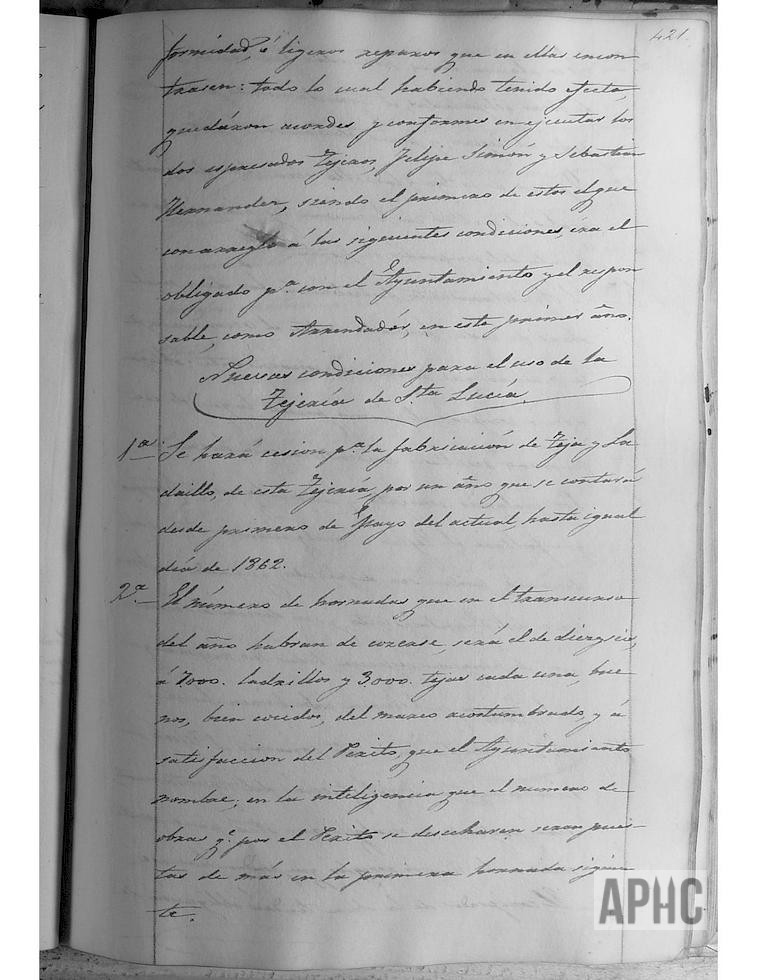 421
formidad, ó ligeros reparos que en ellas encon
trasen: todo lo cual habiendo tenido efecto,
quedáron acordes y conformes en ejecutar los
dos espresados Tejeros, Felipe Simón y Sebastian
Hernandez, siendo el primero de estos el que
con arreglo á las siguientes condiciones, éra el
obligado pª con el Ayuntamiento y el respon
sable, como Arrendadór, en este primer año.
Nuevas condiciones para el uso de la
Tejería de Sta Lucía.
1ª Se hará cesion pª la fabricación de Teja y La
drillo, de esta Tejería, por un año que se contará
desde primero de Mayo del actual, hasta igual
día de 1862.
2ª El número de hornadas que en el transcurso
del año habran de cocerse, será el de diez y seis,
á 7000. ladrillos y 3000. tejas cada una, bue
nos, bien cocidos, del marco acostumbrado, y á
satisfaccion del Perito, que el Ayuntamiento
nombre; en la inteligencia que el numero de
obras qe por el Perito se desecharen seran pues-
tas de más en la primera hornada siguien
te.
APHC